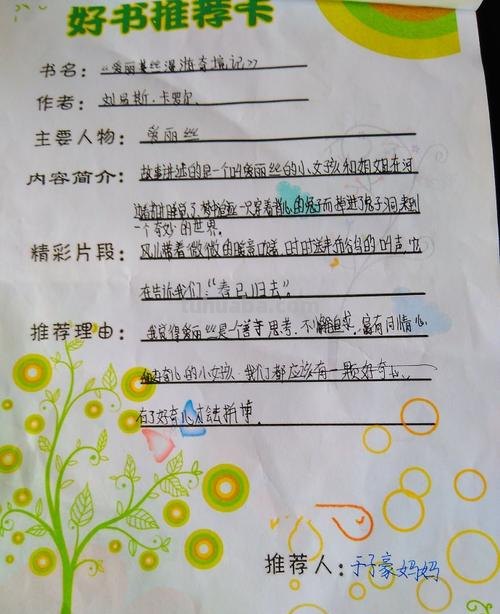 好书推荐卡
书名：《爱丽丝漫游奇境记》
作者：刘易斯·卡罗尔
主要人物：爱丽丝
内容简介：故事讲述的是一个叫爱丽丝的小女孩和姐姐在河
边看书时睡着了，梦中追逐一次穿着背心的兔子而掉进了兔子洞来到
一个奇妙的世界。
精彩片段：风儿带着微微的暖意吹着，时时送来布谷鸟的叫声，它
在告诉我们：“春已归去”。
推荐理由：我觉得爱丽丝是个善于思考，不懈追求，富有同情心，
好奇心的小女孩，我们都应该有一颗好奇心，
有了好奇心才去拼搏。
tuhuaba.com
推荐人：于子豪妈妈